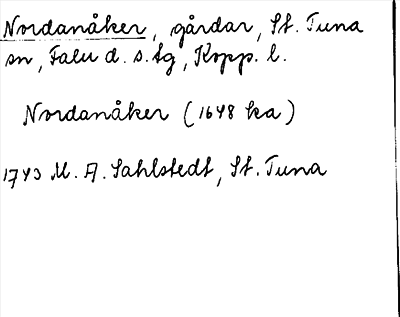 Nordanåker, gårdar, St. Tuna
sn, Falu d. s. tg, Kopp. l.
Nordanåker (1648 ka)
1743 M. A. Sahlstedt, St. Tuna